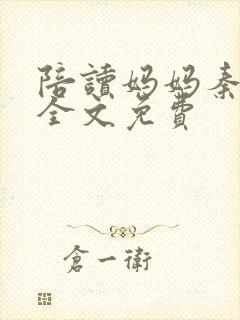 陪讀媽媽秦
全文免費
倉一衛